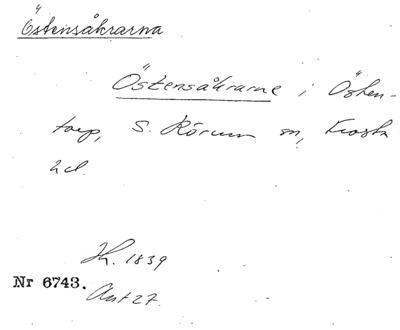 Östensåkrarna
Östensåkrarne i Östen-
torp, S. Rörum sn, Frosta
hd.
H. 1839
Nr 6743.
Akt 27.